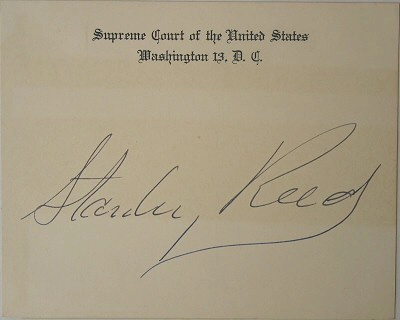 Supreme Court of the United States
Washington 13, D. C.
Stanley Reed